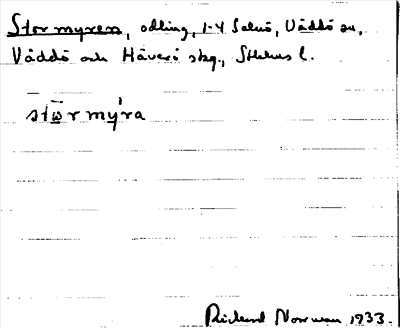 Stormyren, odling, 1-4 Salnö, Väddö sn,
Väddö och Häverö skg., Sthlms l.
stω̄r my̍ra
Rickard Norman 1933.